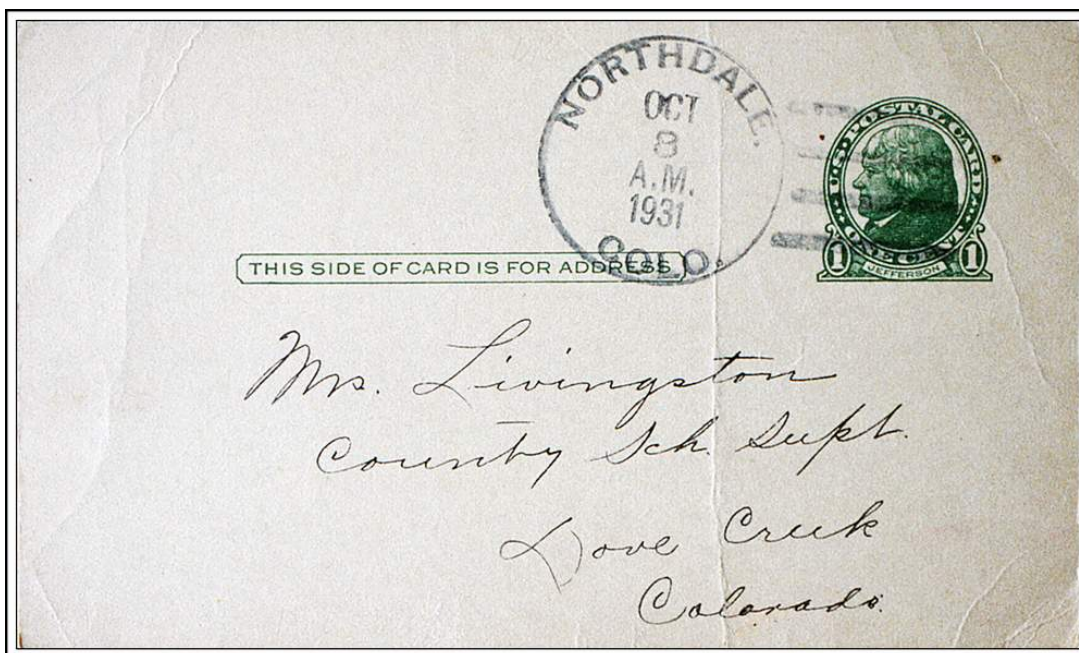 NORTHDALE, COLO.
OCT
8
A.M.
1931
U.S. POSTAL CARD
ONE CENT
1 JEFFERSON 1
THIS SIDE OF CARD IS FOR ADDRESS
Mrs. Livingston
County Sch. Supt.
Dove Creek
Colorado.